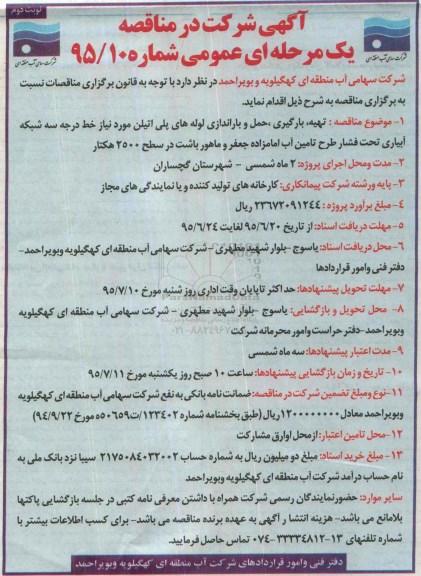 نوبت دوم
آگهی شرکت در مناقصه
یک مرحله ای عمومی شماره ۹۵/۱۰
شرکت سهامی آب منطقه ای
شرکت سهامی آب منطقه ای کهگیلویه و بویراحمد در نظر دارد با توجه به قانون برگزاری مناقصات نسبت
به برگزاری مناقصه به شرح ذیل اقدام نماید.
۱- موضوع مناقصه : تهیه، بارگیری ،حمل و باراندازی لوله های پلی اتیلن مورد نیاز خط درجه سه شبکه
آبیاری تحت فشار طرح تامین آب امامزاده جعفر و ماهور باشت در سطح ۲۵۰۰ هکتار
۲- مدت ومحل اجرای پروژه: ۲ ماه شمسی - شهرستان گچساران
۳- پایه ورشته شرکت پیمانکاری: کارخانه های تولید کننده و یا نمایندگی های مجاز
۴- مبلغ برآورد پروژه : ۲۳۶۷۲۰۹۱۲۴۴ ریال
۵- مهلت دریافت اسناد: از تاریخ ۹۵/۶/۲۰ لغایت ۹۵/۶/۲۴
۶- محل دریافت اسناد: یاسوج -بلوار شهید مطهری - شرکت سهامی آب منطقه ای کهگیلویه وبویراحمد-
دفتر فنی وامور قراردادها
۷- مهلت تحویل پیشنهادها: حداکثر تا پایان وقت اداری روز شنبه مورخ ۹۵/۷/۱۰
۸- محل تحویل و بازگشایی: یاسوج -بلوار شهید مطهری - شرکت سهامی آب منطقه ای کهگیلویه
وبویراحمد-دفتر حراست وامور محرمانه شرکت
۹- مدت اعتبار پیشنهادها: سه ماه شمسی
۱۰- تاریخ و زمان بازگشایی پیشنهادها: ساعت ۱۰ صبح روز یکشنبه مورخ ۹۵/۷/۱۱
۱۱-نوع ومبلغ تضمین شرکت در مناقصه: ضمانت نامه بانکی به نفع شرکت سهامی آب منطقه ای کهگیلویه
وبویراحمد معادل ۱۲۰۰۰۰۰۰۰۰ ریال (طبق بخشنامه شماره ۱۲۳۴۰۲/ت۵۰۶۵۹ه مورخ ۹۴/۹/۲۲)
۱۲-محل تامین اعتبار: از محل اوراق مشارکت
۱۳- مبلغ خرید اسناد: مبلغ دو میلیون ریال به شماره حساب ۲۱۷۵۰۸۴۰۳۲۰۰۲ سیبا نزد بانک ملی به
نام حساب درآمد شرکت آب منطقه ای کهگیلویه وبویراحمد
سایر موارد: حضور نمایندگان رسمی شرکت همراه با داشتن معرفی نامه کتبی در جلسه بازگشایی پاکتها
بلامانع می باشد- هزینه انتشار آگهی به عهده برنده مناقصه می باشد- برای کسب اطلاعات بیشتر با
شماره تلفنهای ۱۳-۳۳۳۳۴۸۱۲ -۰۷۴ تماس حاصل فرمایید.
دفتر فنی وامور قراردادهای شرکت آب منطقه ای کهگیلویه وبویراحمد